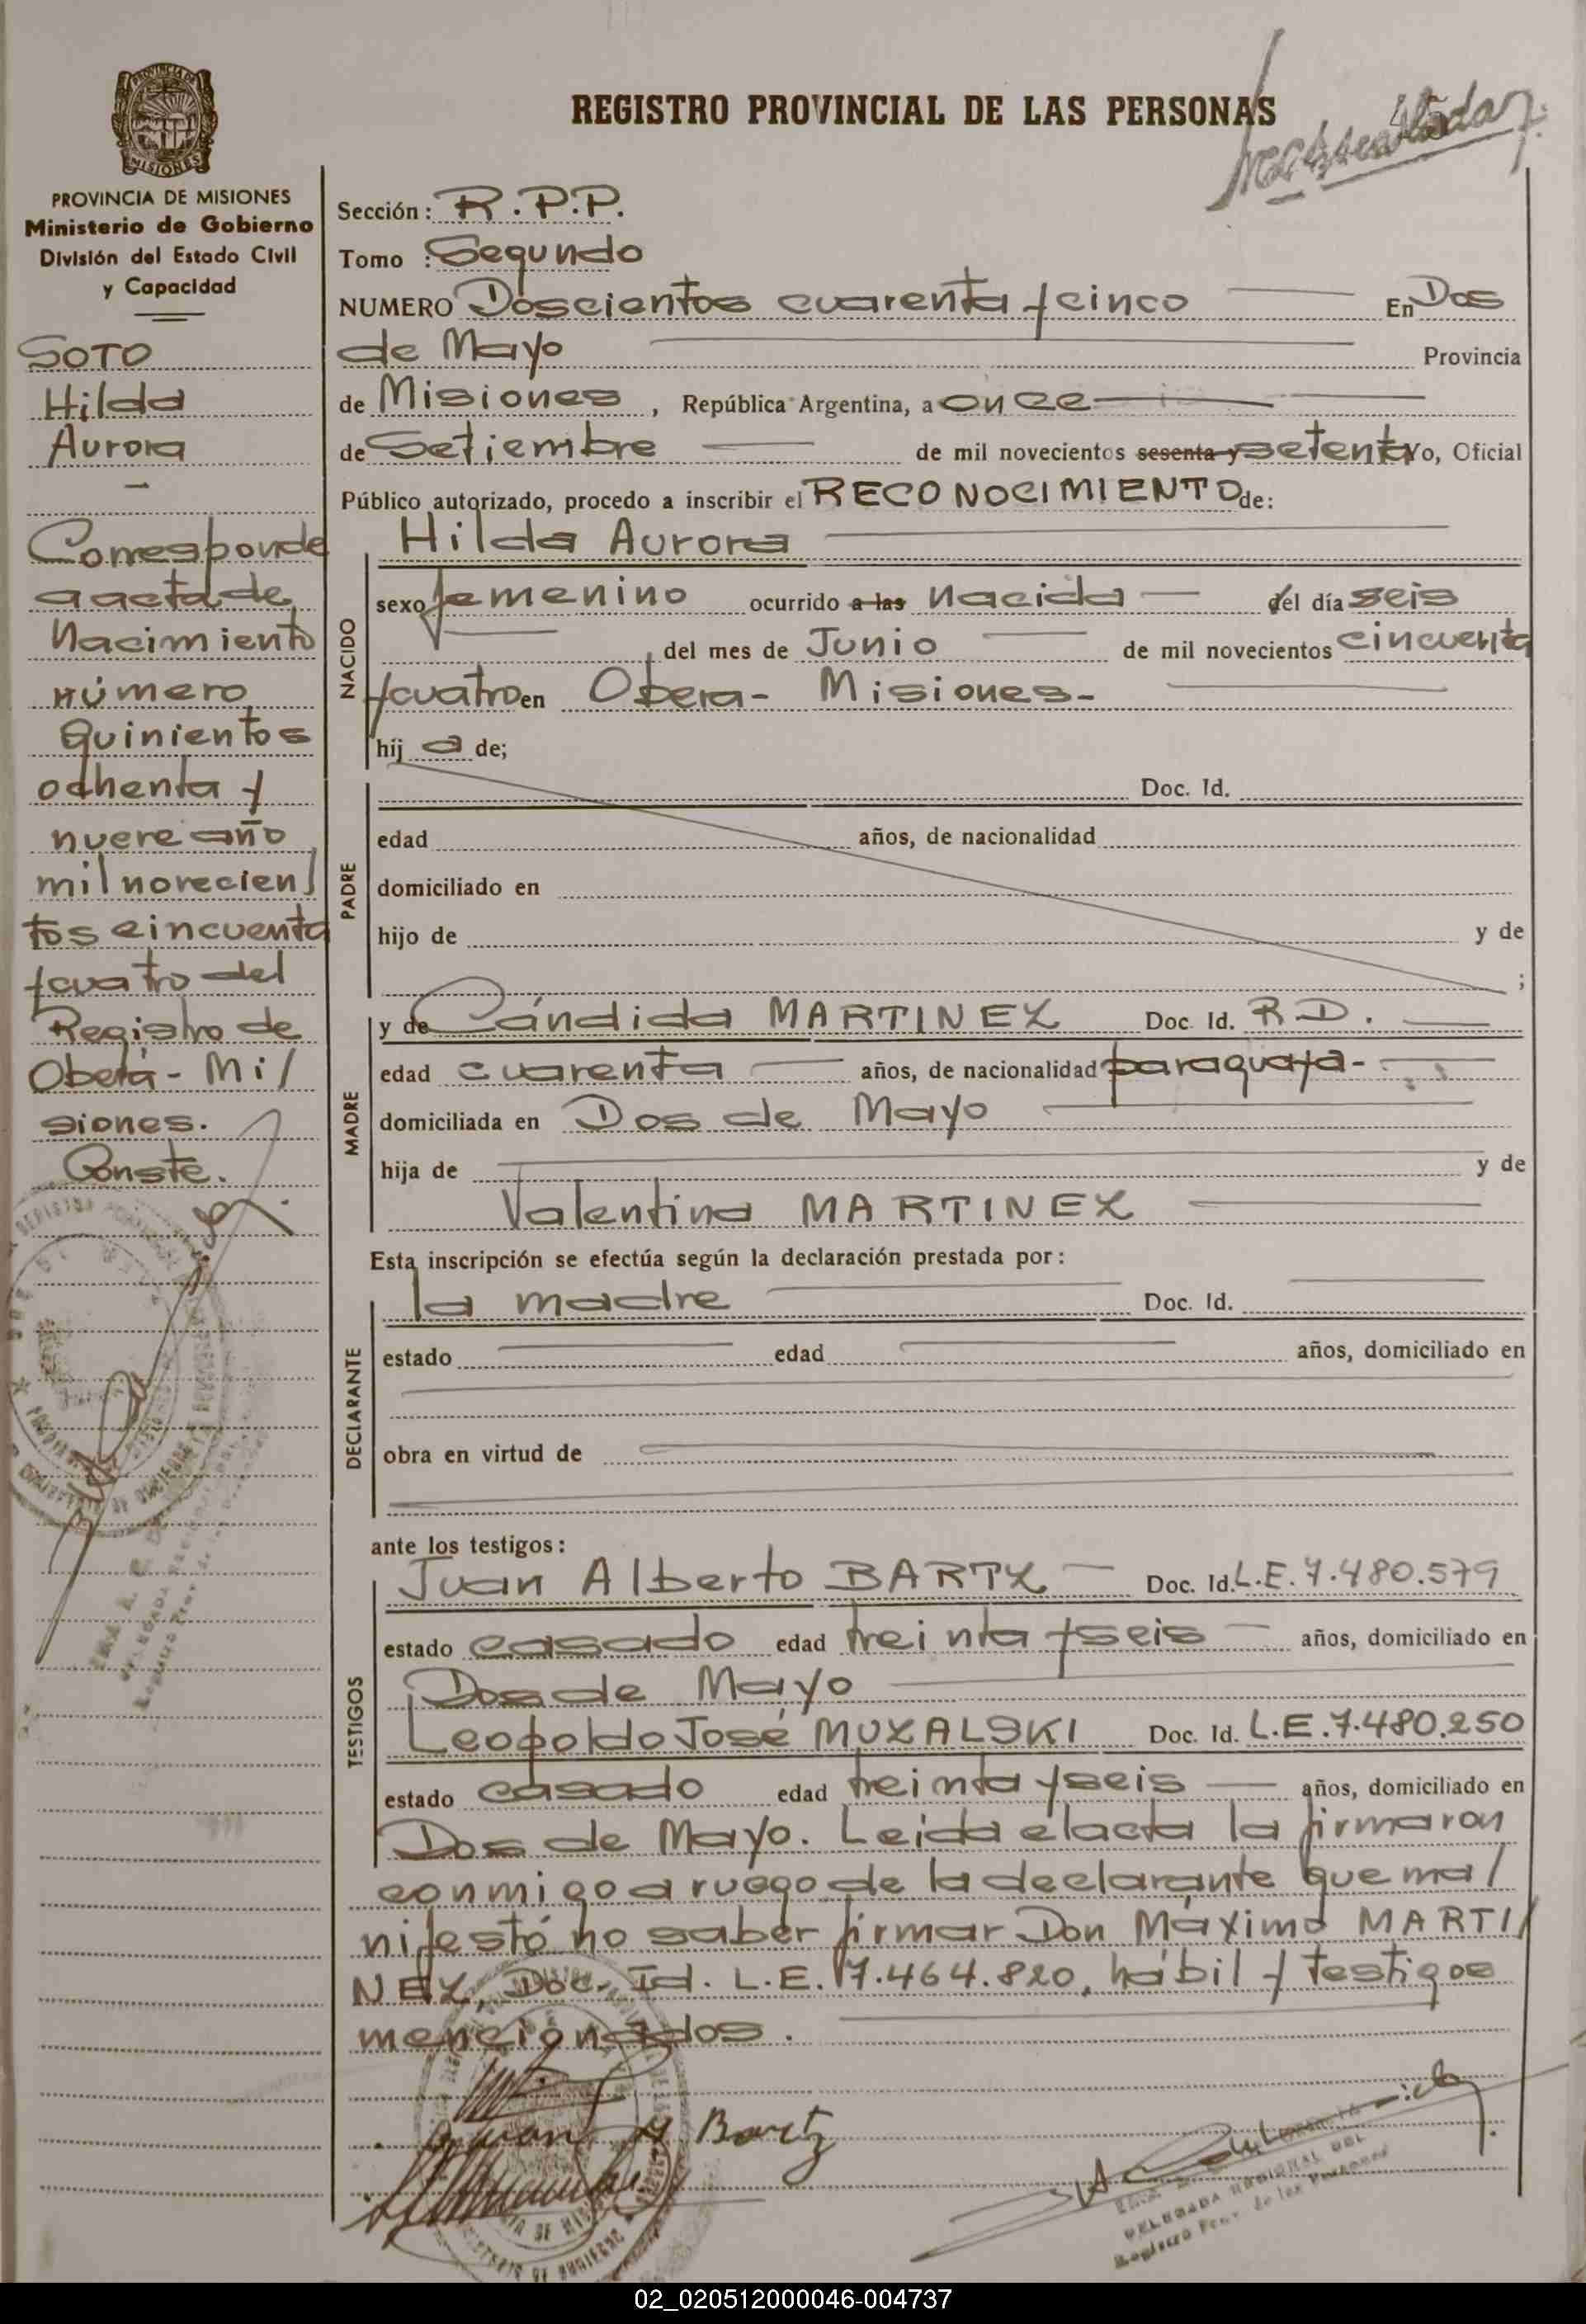 REGISTRO PROVINCIAL DE LAS PERSONAS
45
PROVINCIA DE MISIONES
Ministerio de Gobierno
División del Estado Civil
y Capacidad
SOTO
Hilda
Aurora
Corresponde
a acta de
Nacimiento
número
Quinientos
ochenta y
nueve año
mil novecien/
tos cincuenta
y cuatro del
Registro de
Oberá - Mi/
siones.
Conste.
Sección: R.P.P.
Tomo : Segundo
NUMERO Doscientos cuarenta y cinco En Dos
de Mayo Provincia
de Misiones, República Argentina, a once
de Setiembre de mil novecientos sesenta y setenta Yo, Oficial
Público autorizado, procedo a inscribir el RECONOCIMIENTO de:
NACIDO
Hilda Aurora
sexo femenino ocurrido a las nacida del día seis
del mes de Junio de mil novecientos cincuenta
y cuatro en Obera- Misiones-
hij a de;
PADRE
Doc. Id.
edad años, de nacionalidad
domiciliado en
hijo de y de
;
MADRE
y de Cándida MARTINEZ Doc. Id. R.D.
edad cuarenta años, de nacionalidad paraguaya-
domiciliada en Dos de Mayo
hija de y de
Valentina MARTINEZ
Esta inscripción se efectúa según la declaración prestada por:
DECLARANTE
la madre Doc. Id.
estado edad años, domiciliado en
obra en virtud de
ante los testigos:
TESTIGOS
Juan Alberto BARTZ Doc. Id. L.E.7.480.579
estado casado edad treinta y seis años, domiciliado en
Dos de Mayo
Leopoldo José MUZALSKI Doc. Id. L.E.7.480.250
estado casado edad treinta y seis años, domiciliado en
Dos de Mayo. Leida el acta la firmaron
conmigo a ruego de la declarante que ma/
nifestó no saber firmar Don Máximo MARTI/
NEZ, Doc. Id. L.E. 7.464.820, hábil y testigos
mencionados.
Juan A Bartz
DELEGADA REGIONAL DEL
Registro Prov. de las Personas
02_020512000046-004737